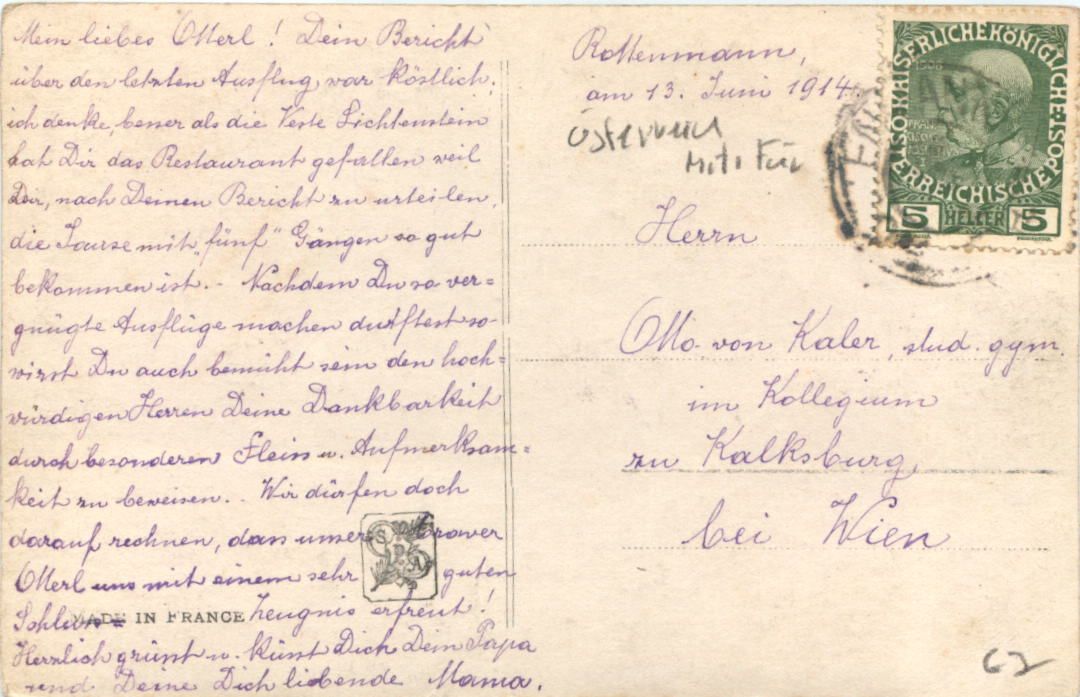 Mein liebes Otterl! Dein Bericht
über den letzten Ausflug war köstlich;
ich denke, besser als die Veste Lichtenstein
hat Dir das Restaurant gefallen weil
Dir, nach Deinen Bericht zu urteilen,
die Jause mit "fünf" Gängen so gut
bekommen ist. - Nachdem Du so ver=
gnügte Ausflüge machen durftest so
wirst Du auch bemüht sein den hoch=
würdigen Herren Deine Dankbarkeit
durch besonderen Fleiss u. Aufmerksam=
keit zu beweisen. - Wir dürfen doch
darauf rechnen, dass unser braver
Otterl uns mit einem sehr guten
Schluss= Zeugnis erfreut!
Herzlich grüsst u. küsst Dich Dein Papa
und Deine Dich liebende Mama.
MADE IN FRANCE
Rottenmann,
am 13. Juni 1914.
Österreich
Herrn
Otto von Kaler, stud. gym.
im Kollegium
zu Kalksburg,
bei Wien
KAISERLICHEKÖNIGLICHE
ÖSTERREICHISCHEPOST
1908
5 HELLER 5
62